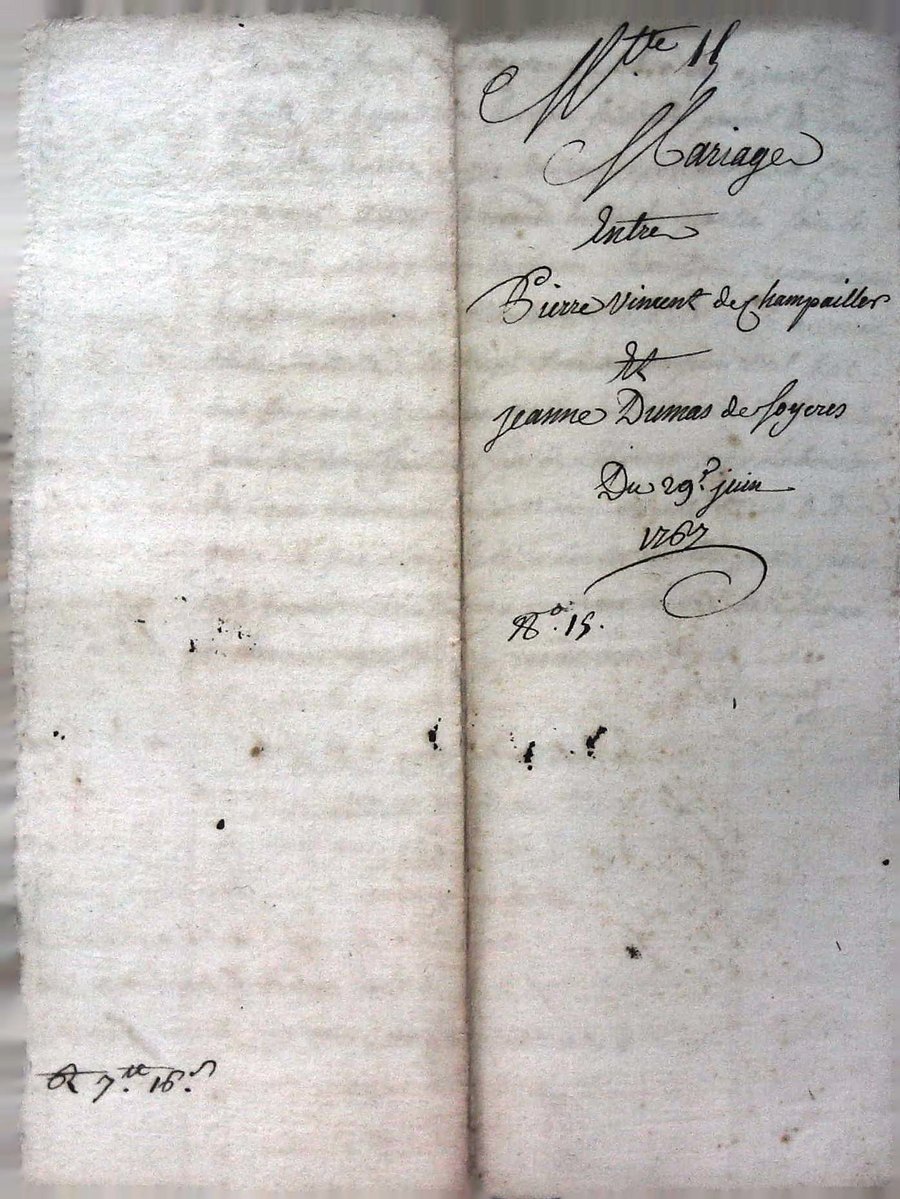 Mtte 15
Mariage
Entre
Pierre Vincent de Champailler
Et
jeanne Dumas de soyeres
Du 29e juin
1767
No. 15.
R 7tt 16s